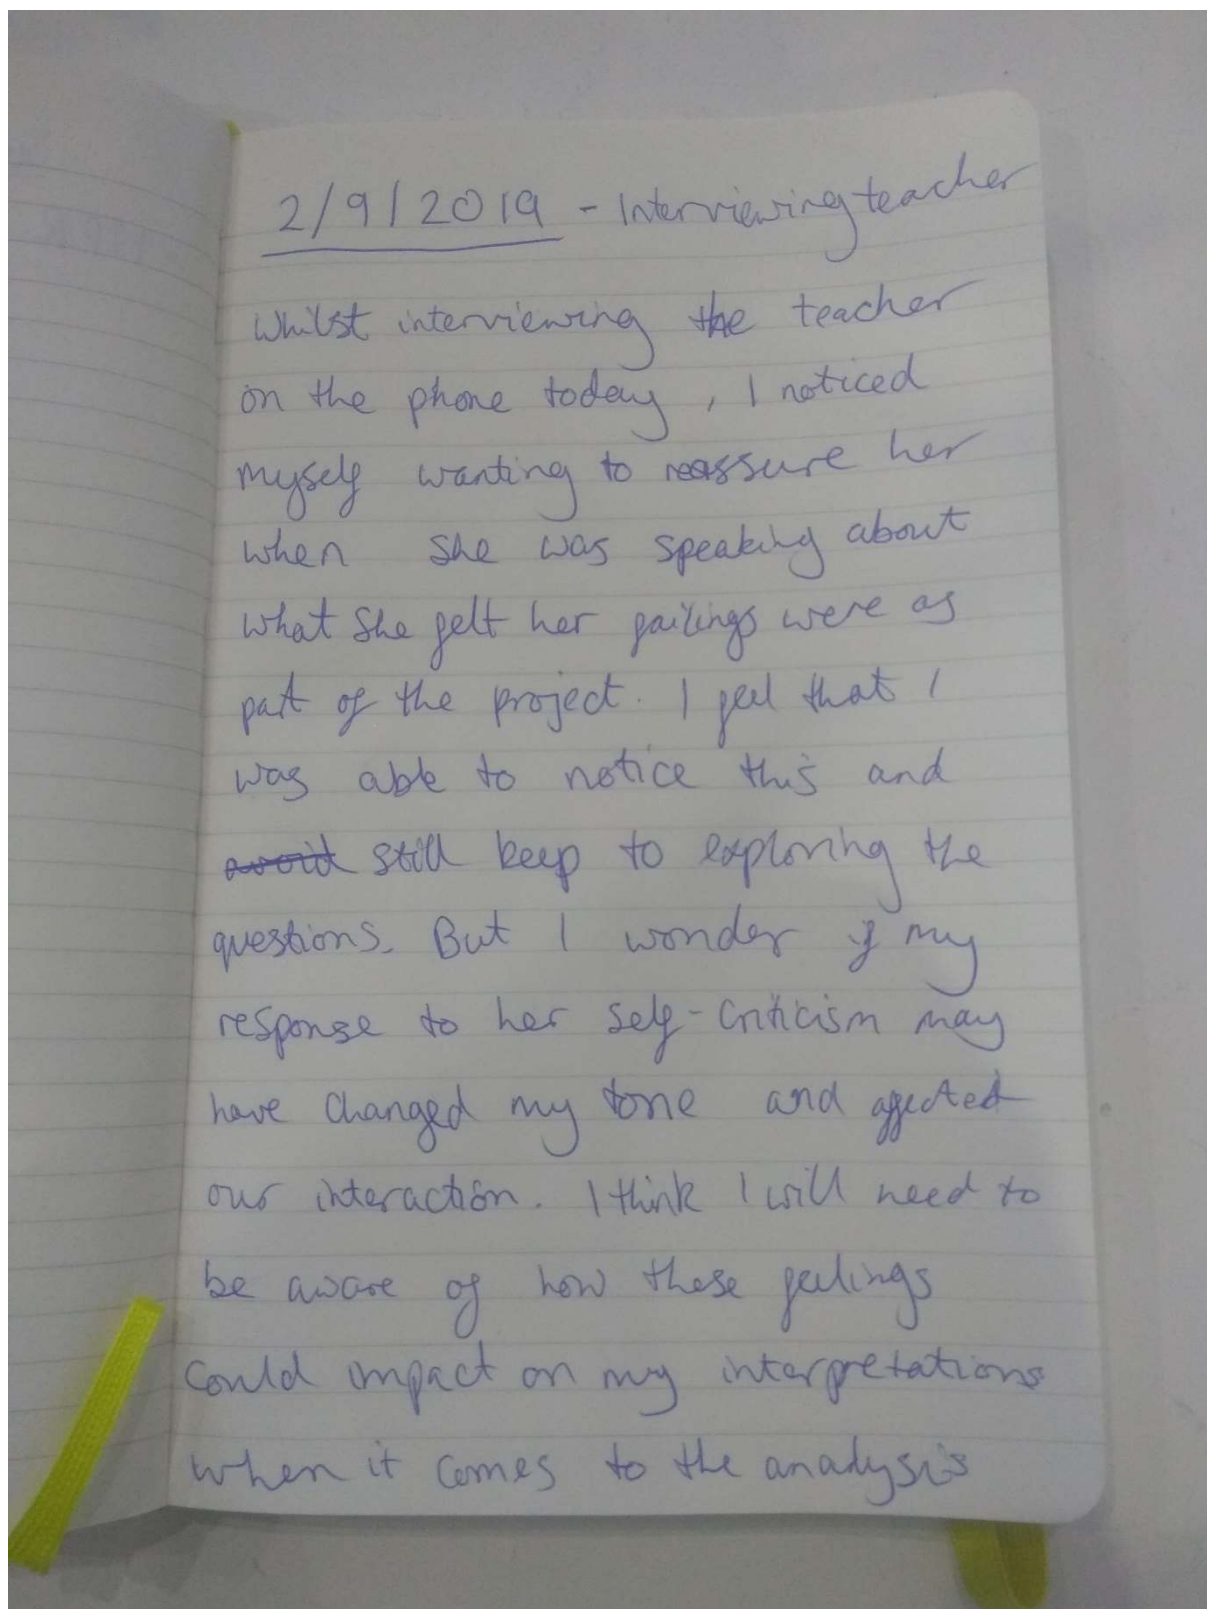 2/9/2019 - Interviewing teacher
Whilst interviewing the teacher
on the phone today, I noticed
myself wanting to reassure her
when she was speaking about
what she felt her failings were as
part of the project. I feel that I
was able to notice this and
avoid still keep to exploring the
questions. But I wonder if my
response to her self-criticism may
have changed my tone and affected
our interaction. I think I will need to
be aware of how these feelings
could impact on my interpretations
when it comes to the analysis